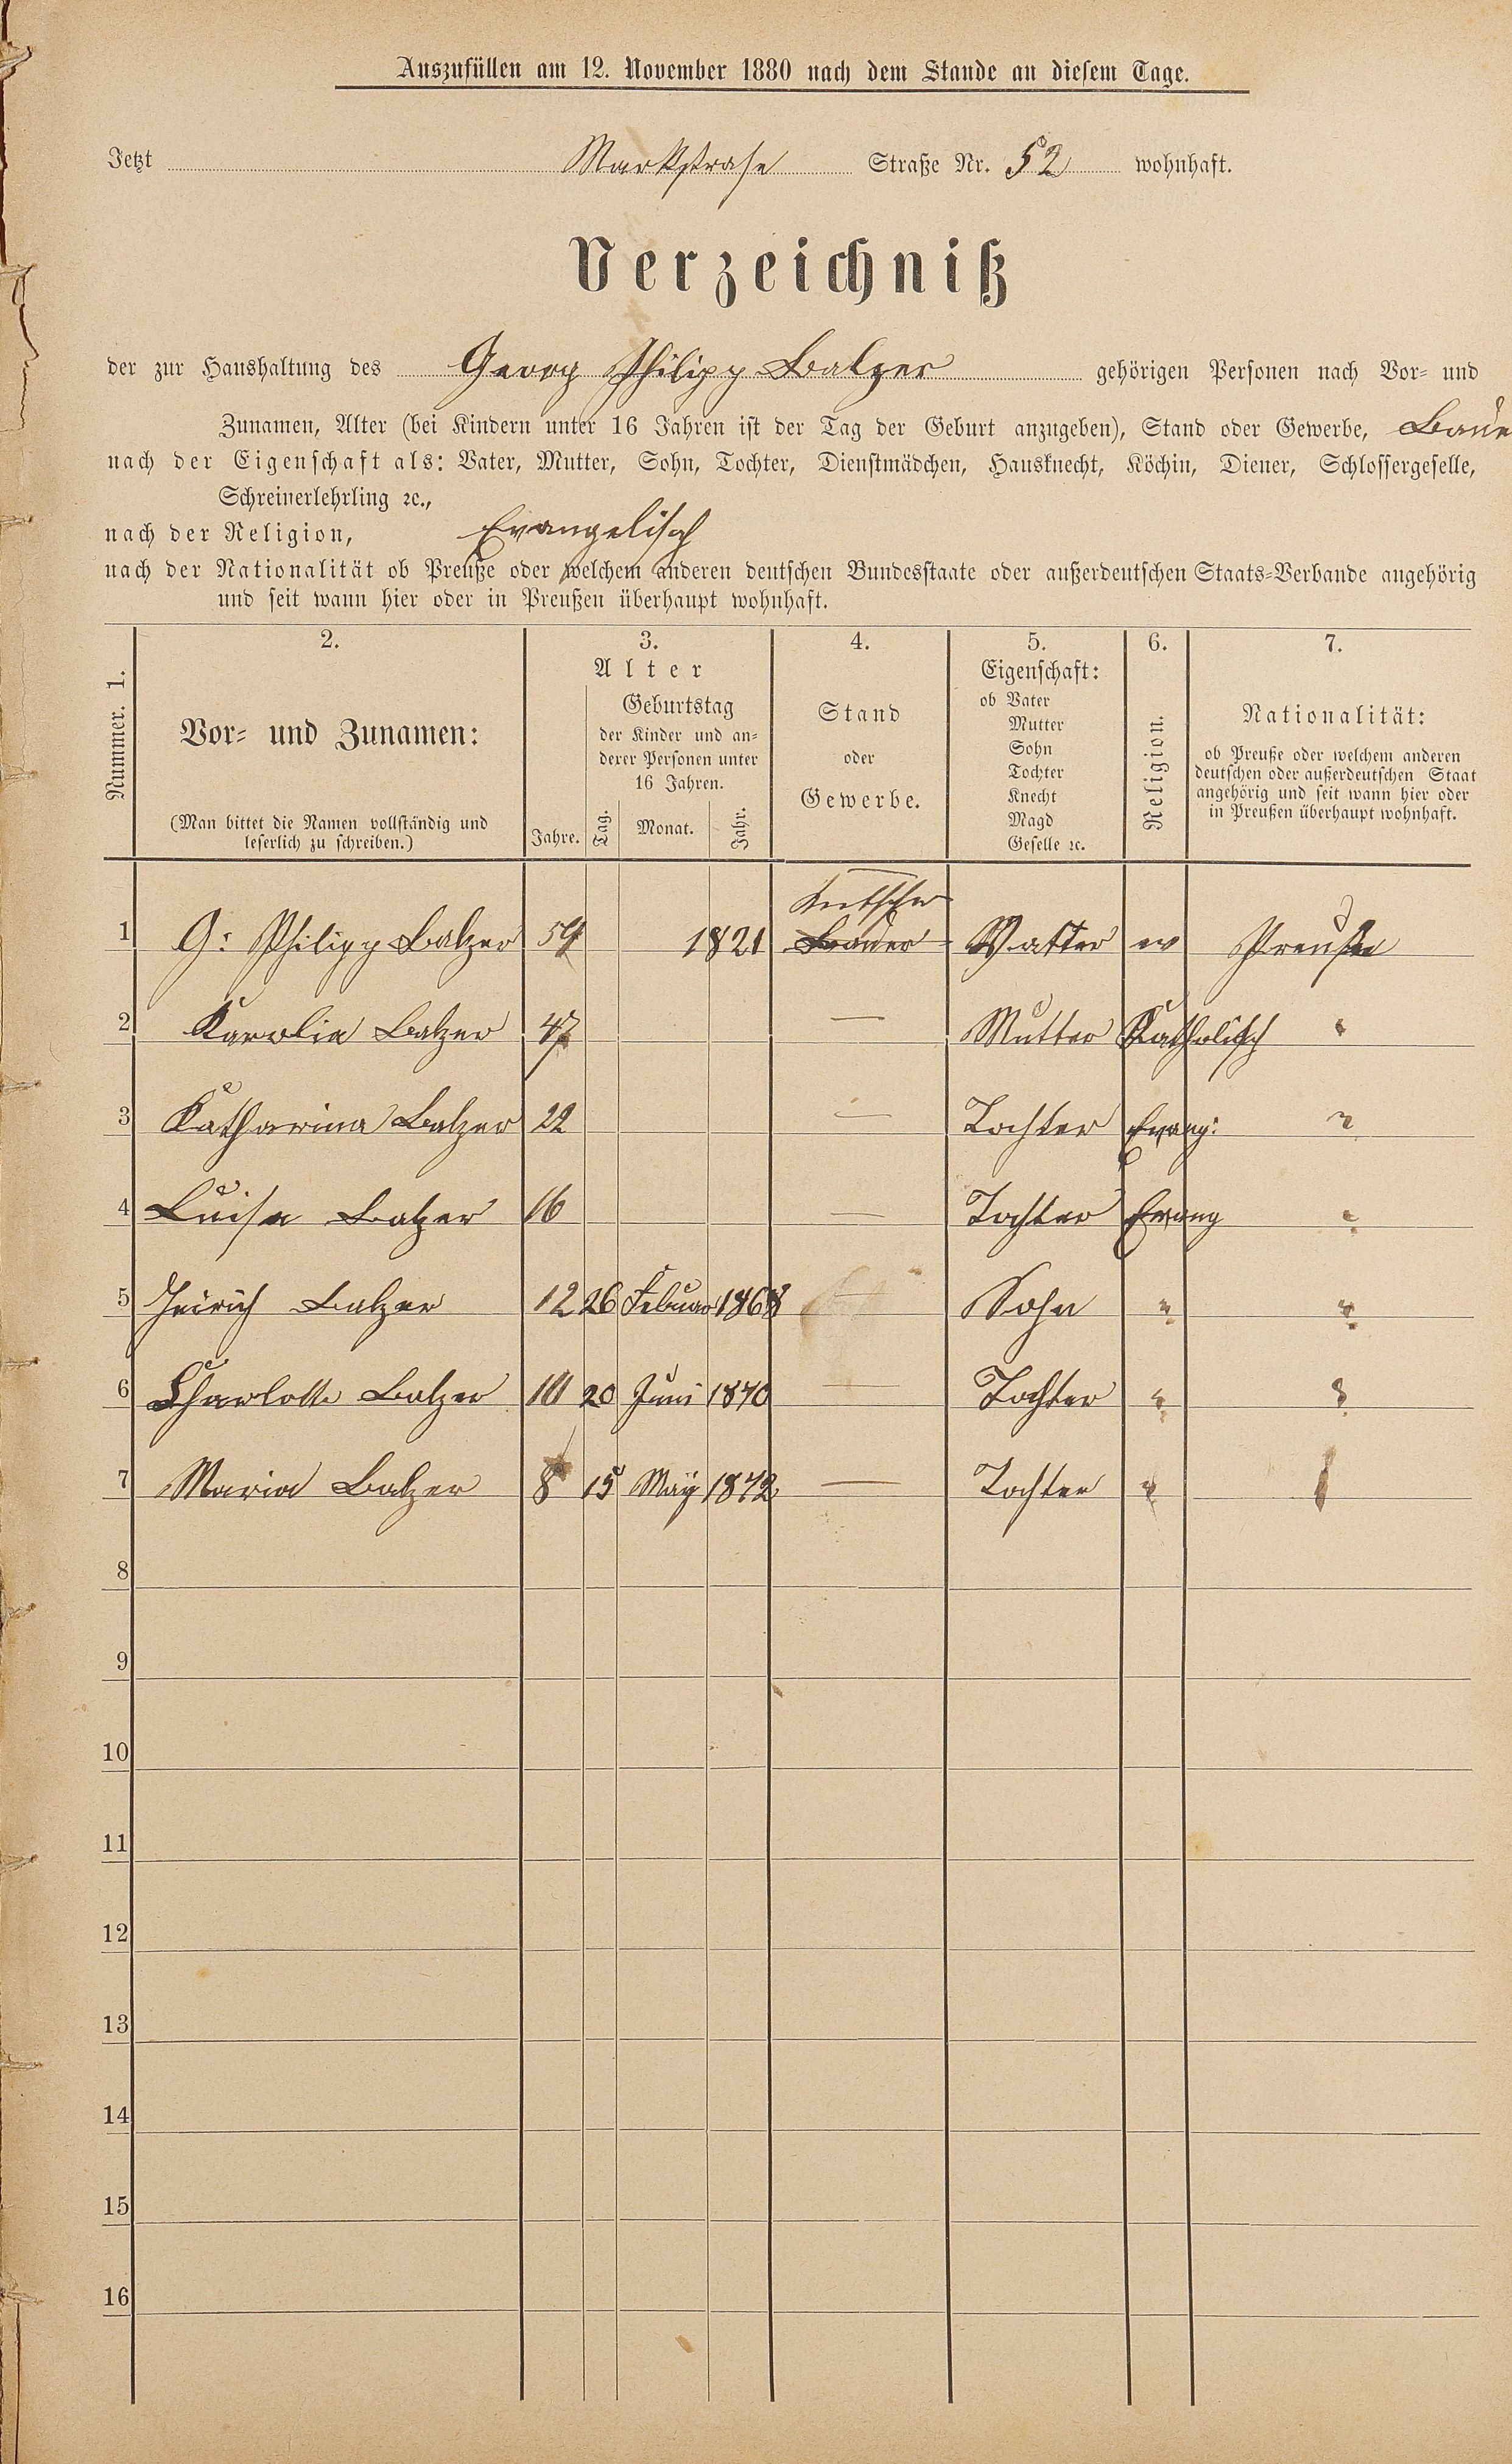 Auszufüllen am 12. November 1880 nach dem Stande an diesem Tage.
Jetzt Markstrase Straße Nr. 52 wohnhaft.
Verzeichniß
der zur Haushaltung des Georg Philipp Balzer gehörigen Personen nach Vor- und
Zunamen, Alter (bei Kindern unter 16 Jahren ist der Tag der Geburt anzugeben), Stand oder Gewerbe, Baue
nach der Eigenschaft als: Vater, Mutter, Sohn, Tochter, Dienstmädchen, Hausknecht, Köchin, Diener, Schlossergeselle,
Schreinerlehrling ꝛc.,
nach der Religion, Evangelisch
nach der Nationalität ob Preuße oder welchem anderen deutschen Bundesstaate oder außerdeutschen Staats-Verbande angehörig
und seit wann hier oder in Preußen überhaupt wohnhaft.
Nummer. 1.
2.
Vor- und Zunamen:
(Man bittet die Namen vollständig und
leserlich zu schreiben.)
3.
Alter
Jahre.
Geburtstag
der Kinder und an-
derer Personen unter
16 Jahren.
Tag. Monat. Jahr.
4.
Stand
oder
Gewerbe.
5.
Eigenschaft:
ob Vater
Mutter
Sohn
Tochter
Knecht
Magd
Geselle ꝛc.
6.
Religion.
7.
Nationalität:
ob Preuße oder welchem anderen
deutschen oder außerdeutschen Staat
angehörig und seit wann hier oder
in Preußen überhaupt wohnhaft.
Kutscher
1 G: Philipp Balzer 59 1821 Bauer Vatter ev Preuße
2 Karolia Balzer 47 — Mutter Katholisch "
3 Katharina Balzer 22 — Tochter Evang: "
4 Luise Balzer 16 — Tochter Evang "
5 Heirich Balzer 12 26 Febuar 1868 — Sohn " "
6 Charlotte Balzer 10 20 Juni 1870 — Tochter " "
7 Maria Balzer 8 15 Maÿ 1872 — Tochter "
8
9
10
11
12
13
14
15
16